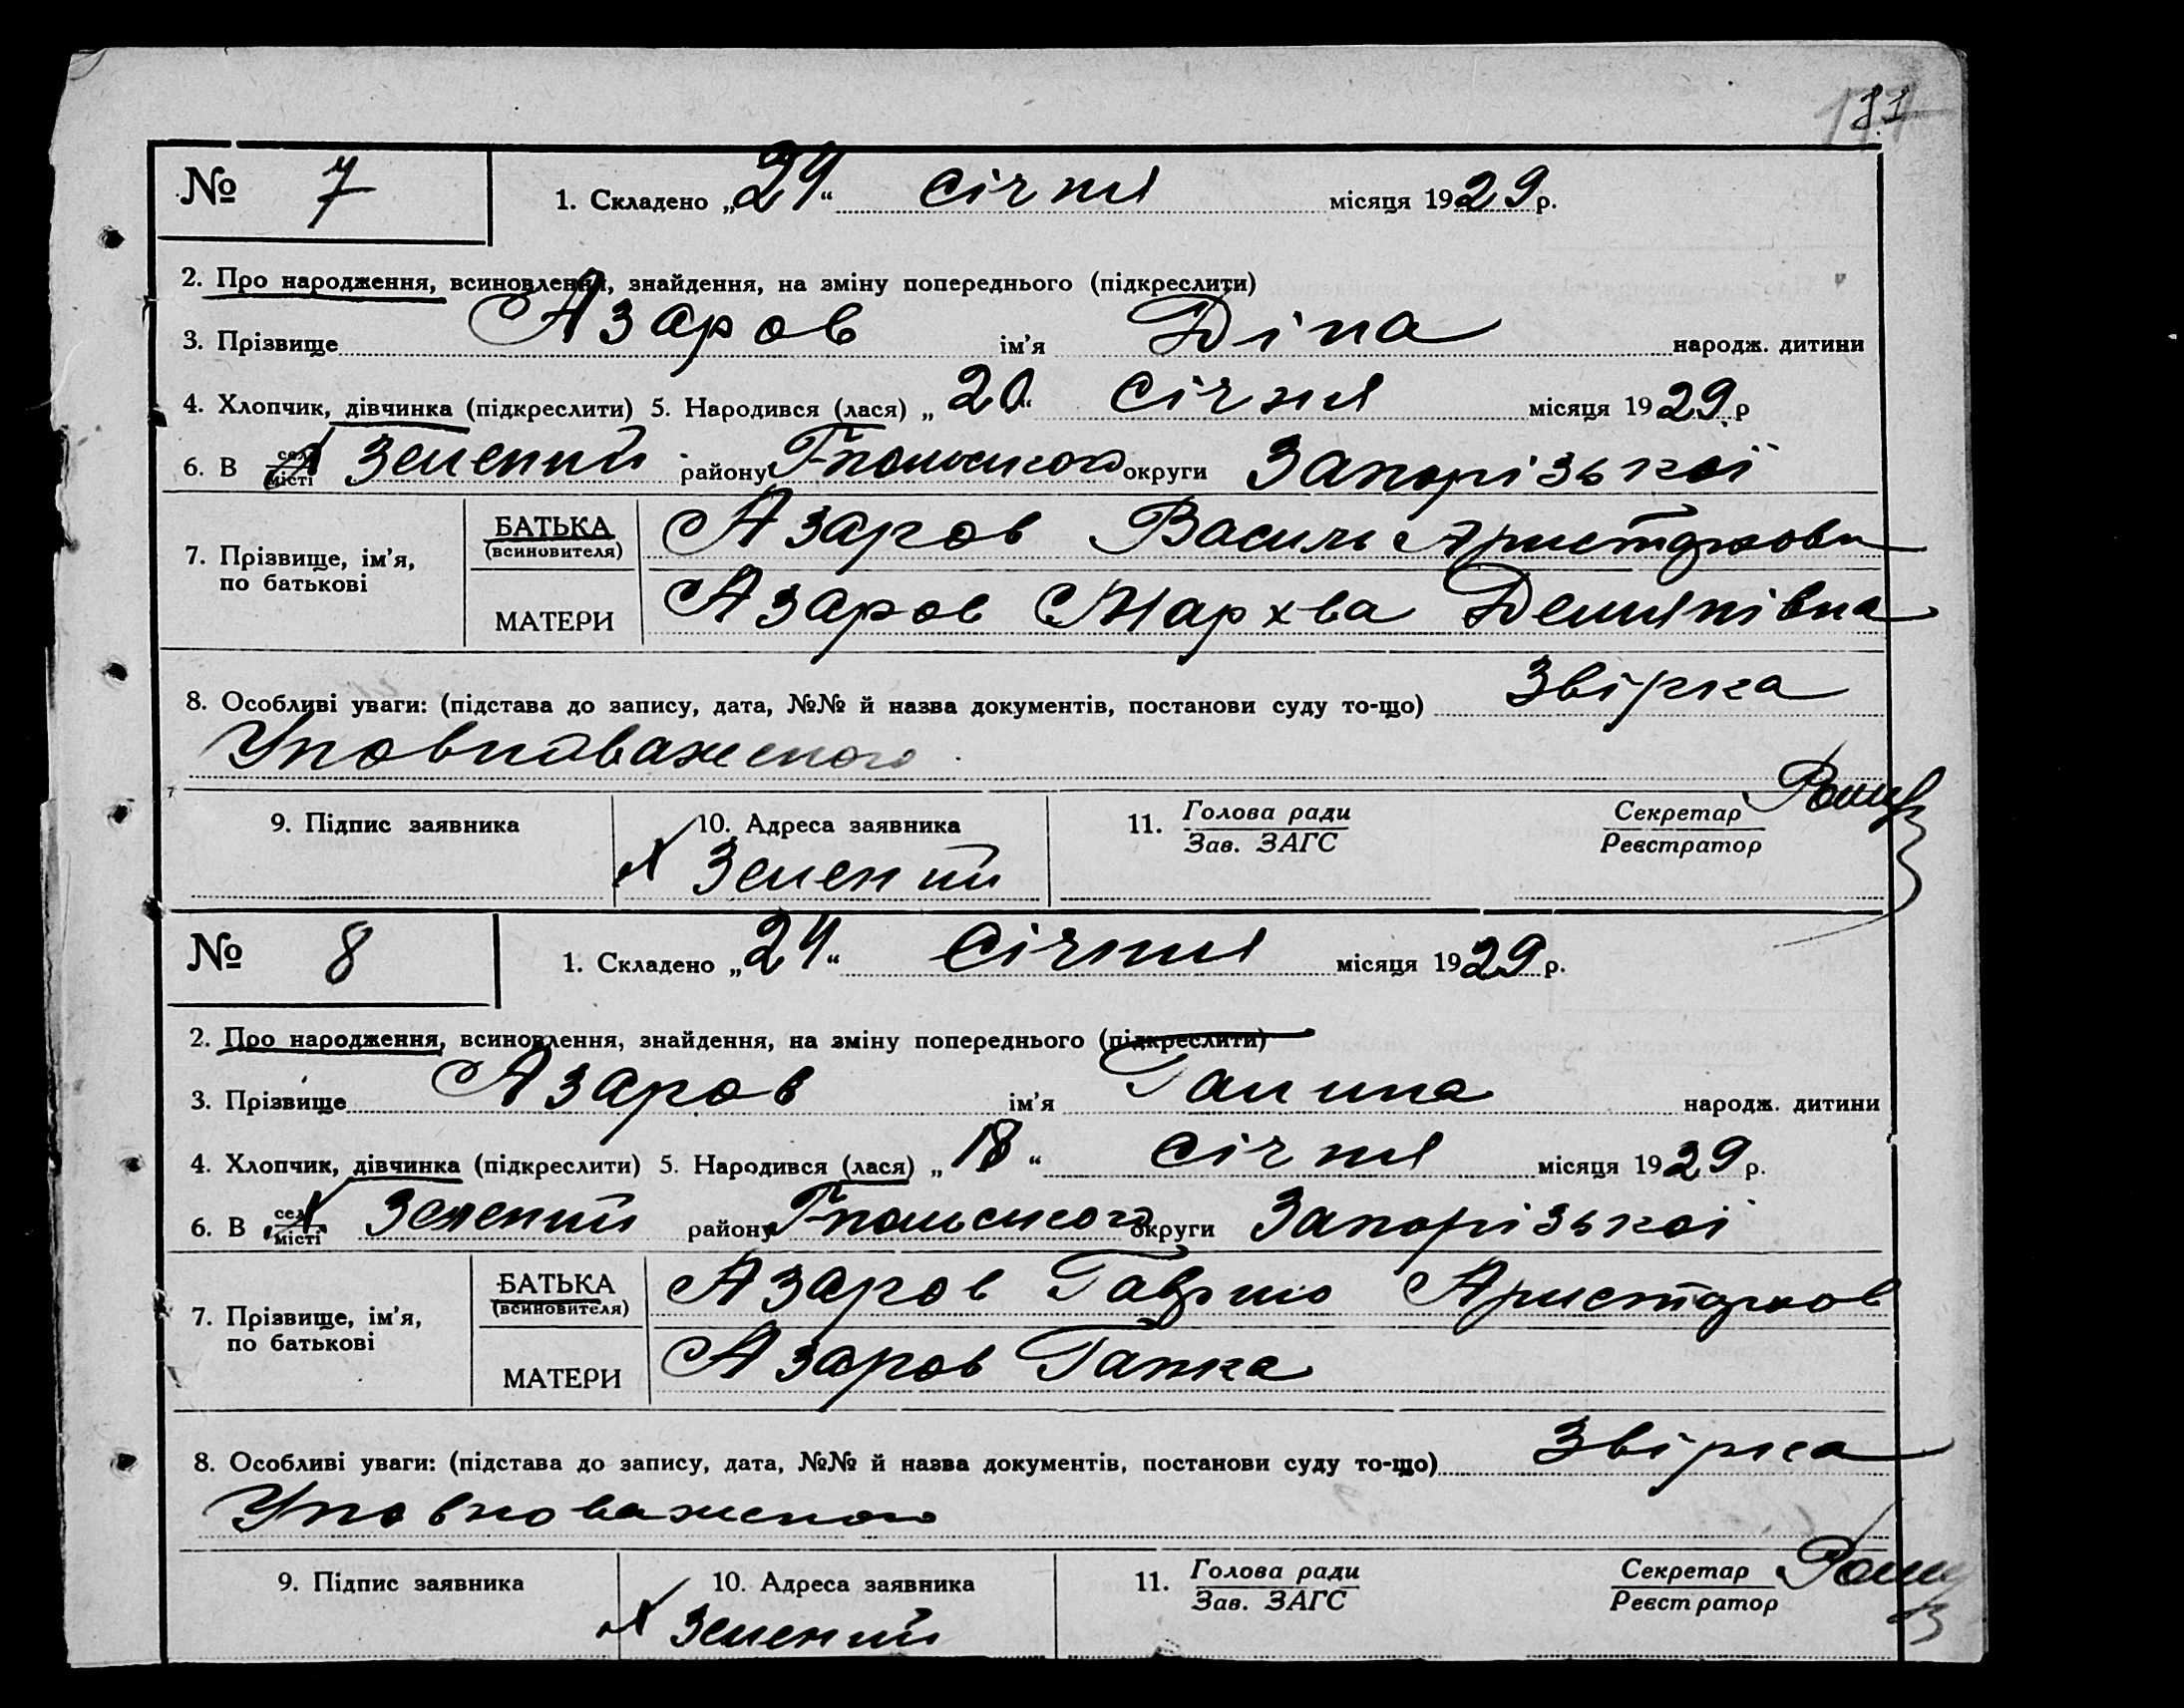 81
№ 7
1. Складено „24“ січня місяця 1929 р.
2. Про народження, всиновлення, знайдення, на зміну попереднього (підкреслити)
3. Прізвище Азаров ім’я Діна народж. дитини
4. Хлопчик, дівчинка (підкреслити) 5. Народився (лася) „20“ січня місяця 1929 р
6. В селі місті х Зелений району Гпольського округи Запорізької
7. Прізвище, ім’я, по батькові
БАТЬКА (всиновителя) Азаров Василь Аристархови
МАТЕРИ Азаров Мархва Демянівна
8. Особливі уваги: (підстава до запису, дата, №№ й назва документів, постанови суду то-що) Звірка
Уповноваженого
9. Підпис заявника 10. Адреса заявника 11. Голова ради Секретар
Зав. ЗАГС Реєстратор
х Зелений
№ 8
1. Складено „24“ Січня місяця 1929 р.
2. Про народження, всиновлення, знайдення, на зміну попереднього (підкреслити)
3. Прізвище Азаров ім’я Галина народж. дитини
4. Хлопчик, дівчинка (підкреслити) 5. Народився (лася) „18“ січня місяця 1929 р.
6. В селі місті х Зелений району Гпольського округи Запорізькоі
7. Прізвище, ім’я, по батькові
БАТЬКА (всиновителя) Азаров Гаврило Аристархов
МАТЕРИ Азаров Гапка
8. Особливі уваги: (підстава до запису, дата, №№ й назва документів, постанови суду то-що) Звірка
Уповноваженого
9. Підпис заявника 10. Адреса заявника 11. Голова ради Секретар
Зав. ЗАГС Реєстратор
х Зелений